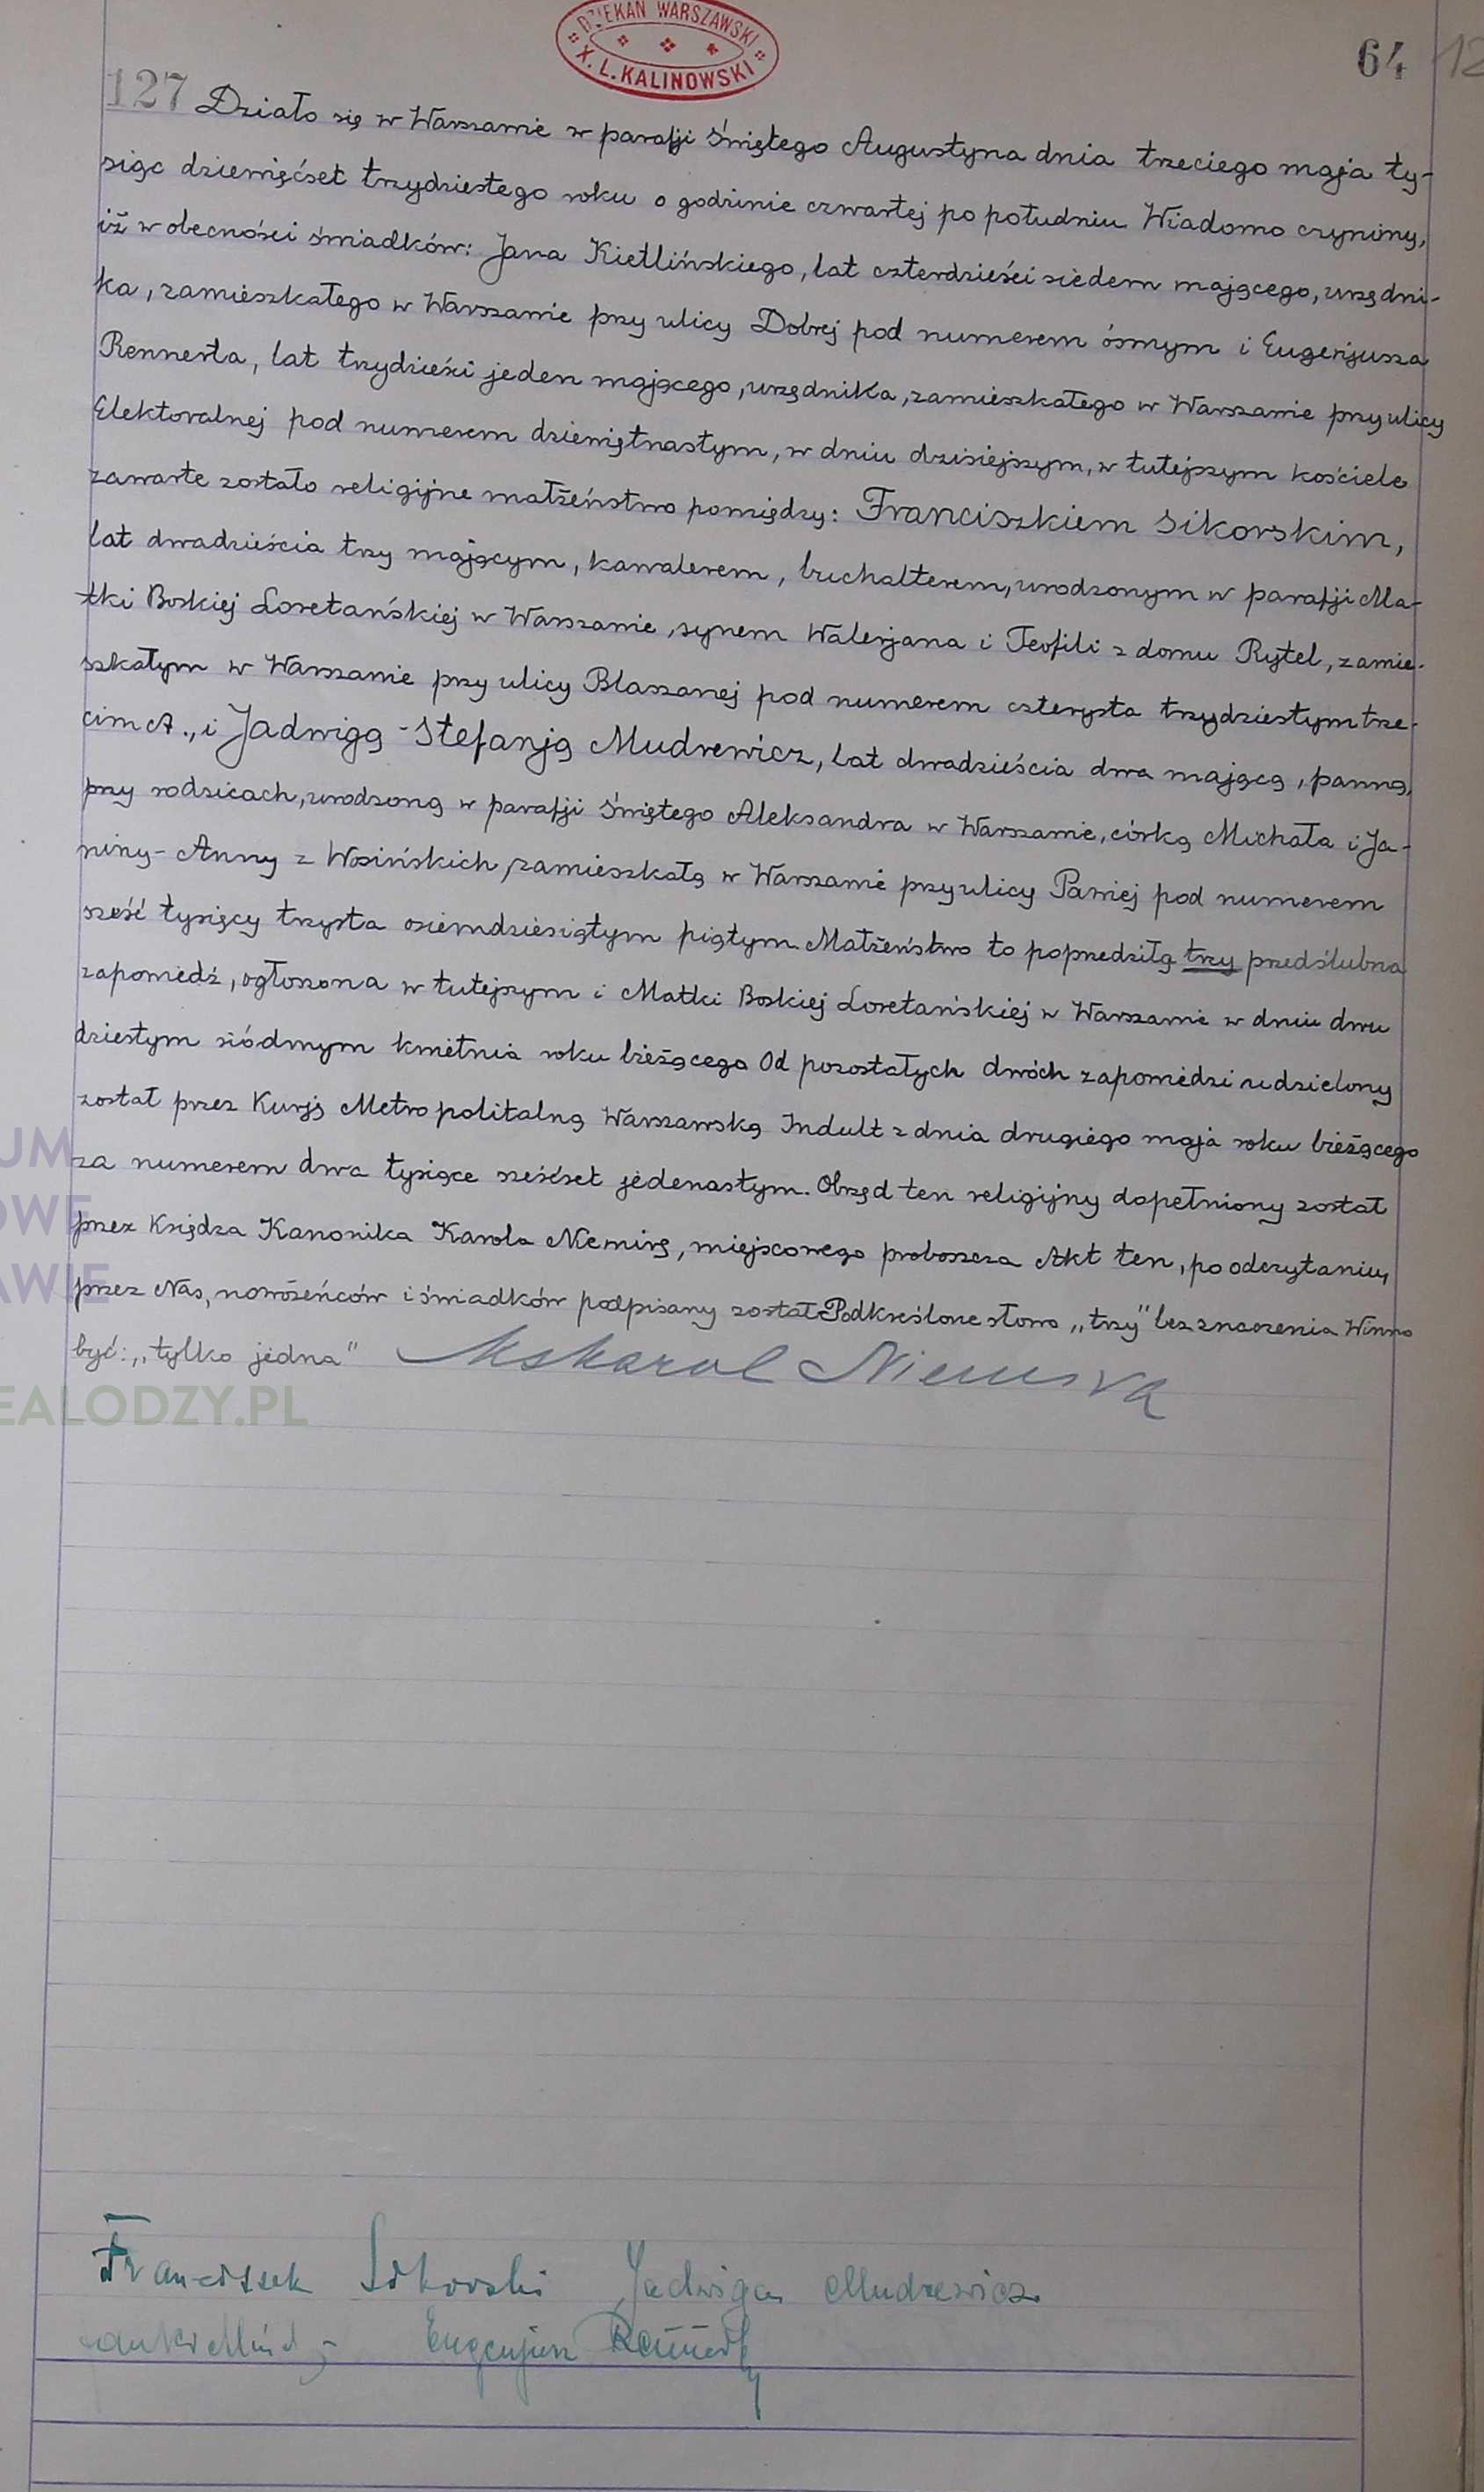 DZIEKAN WARSZAWSKI
X. L. KALINOWSKI
64 12
127 Działo się w Warszawie w parafji Świętego Augustyna dnia trzeciego maja ty-
siąc dziewięćset trzydziestego roku o godzinie czwartej po południu Wiadomo czynimy,
iż w obecności świadków: Jana Kietlińskiego, lat czterdzieści siedem mającego, urzędni-
ka, zamieszkałego w Warszawie przy ulicy Dobrej pod numerem ósmym i Eugenjusza
Rennerta, lat trzydzieści jeden mającego, urzędnika, zamieszkałego w Warszawie przy ulicy
Elektoralnej pod numerem dziewiętnastym, w dniu dzisiejszym, w tutejszym kościele
zawarte zostało religijne małżeństwo pomiędzy: Franciszkiem Sikorskim,
lat dwadzieścia trzy mającym, kawalerem, buchalterem, urodzonym w parafji Ma-
tki Boskiej Loretańskiej w Warszawie, synem Walerjana i Teofili z domu Rytel, zamie-
szkałym w Warszawie przy ulicy Blaszanej pod numerem czterysta trzydziestym trze-
cim A., i Jadwigą-Stefanją Mudrewicz, lat dwadzieścia dwa mającą, panną,
przy rodzicach, urodzoną w parafji Świętego Aleksandra w Warszawie, córką Michała i Ja-
niny-Anny z Wosińskich, zamieszkałą w Warszawie przy ulicy Pawiej pod numerem
sześć tysięcy trzysta osiemdziesiątym piątym. Małżeństwo to poprzedziłą trzy przedślubna
zapowiedź, ogłoszona w tutejszym i Matki Boskiej Loretańskiej w Warszawie w dniu dwu
dziestym siódmym kwietnia roku bieżącego Od pozostałych dwóch zapowiedzi udzielony
został przez Kurję Metropolitalną Warszawską Indult z dnia drugiego maja roku bieżącego
za numerem dwa tysiące sześćset jedenastym. Obrzęd ten religijny dopełniony został
przez Księdza Kanonika Karola Niemirę, miejscowego proboszcza Akt ten, po odczytaniu,
przez Nas, nowożeńców i świadków podpisany został Podkreślone słowo „trzy" bez znaczenia Winno
być: „tylko jedna" Ks Karol Niemira
UM
OWE
AWIE
EALODZY.PL
Franciszek Sikorski Jadwiga Mudrewicz
Eugenjusz Rennert